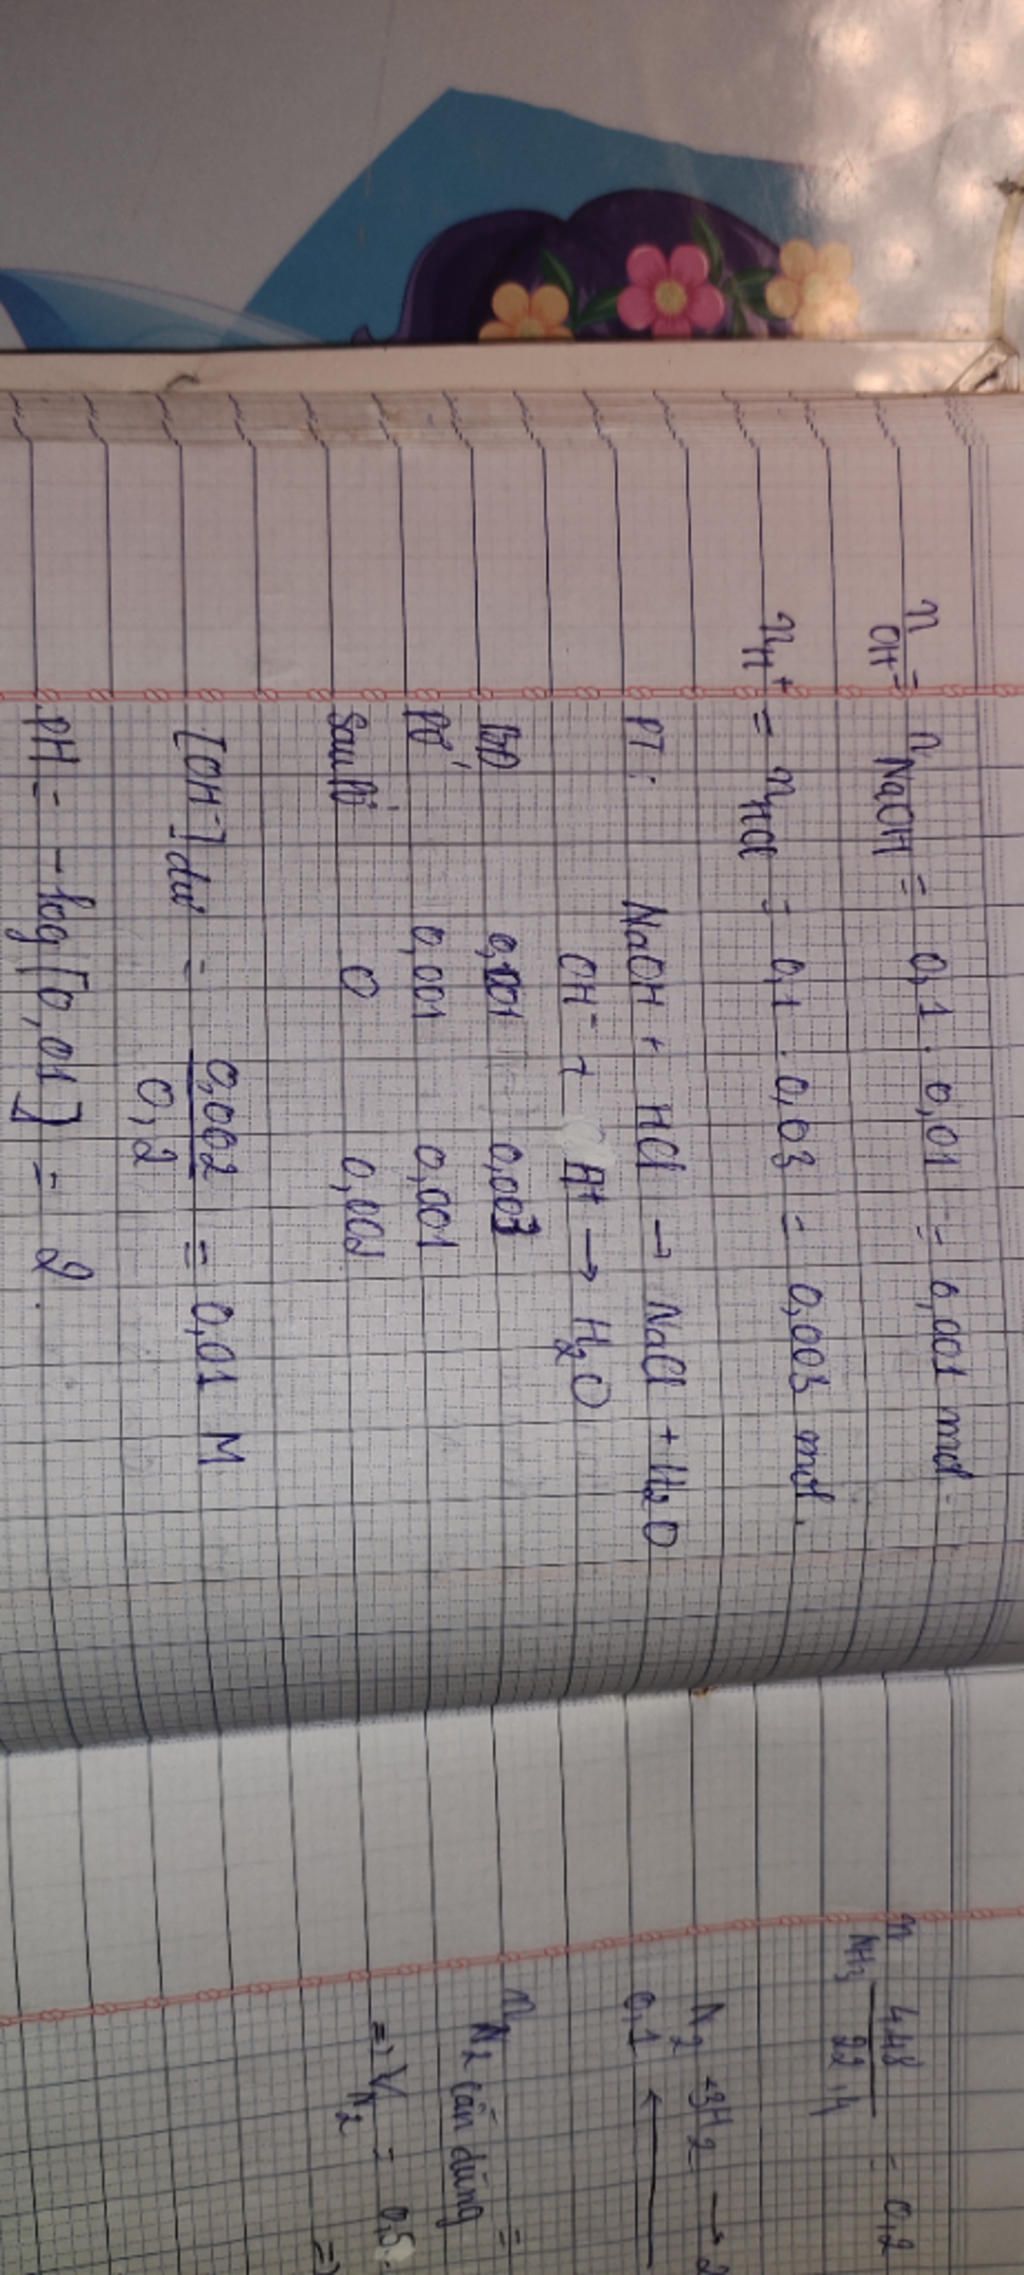 n OH⁻ = n NaOH = 0,1 . 0,01 = 0,001 mol
n H⁺ = n HCl = 0,1 . 0,03 = 0,003 mol.
PT: NaOH + HCl → NaCl + H₂O
OH⁻ + H⁺ → H₂O
BĐ 0,001 0,003
PƯ 0,001 0,001
Sau PƯ 0 0,002
[OH⁻] dư = 0,002 / 0,2 = 0,01 M
pH = - log [0,01] = 2.
n NH₃ 4,48 / 22,4 = 0,2
N₂ + 3H₂ → 2
0,1 ←
n N₂ cần dùng =
=> V N₂ = 0,5.
=>